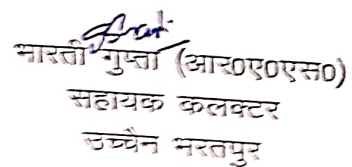 भारती गुप्ता (आर०ए०एस०)
सहायक कलक्टर
उच्चैन भरतपुर